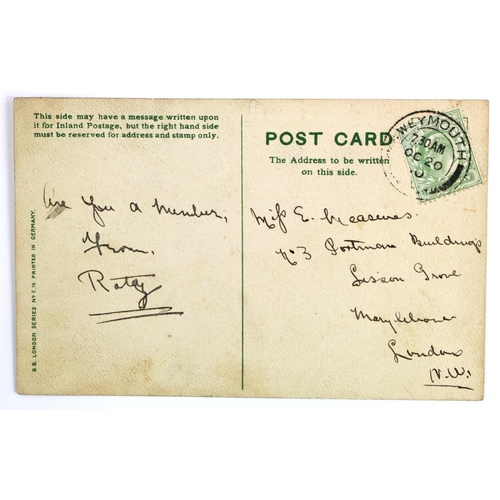 This side may have a message written upon
it for Inland Postage, but the right hand side
must be reserved for address and stamp only.
POST CARD
The Address to be written
on this side.
WEYMOUTH
7.30AM
OC 20
Are You a Member,
From,
Ratey
Miss E. Measures.
No 3 Portman Buildings
Lisson Grove
Marylebone
London
N.W.
B.B. LONDON SERIES PRINTED IN GERMANY.